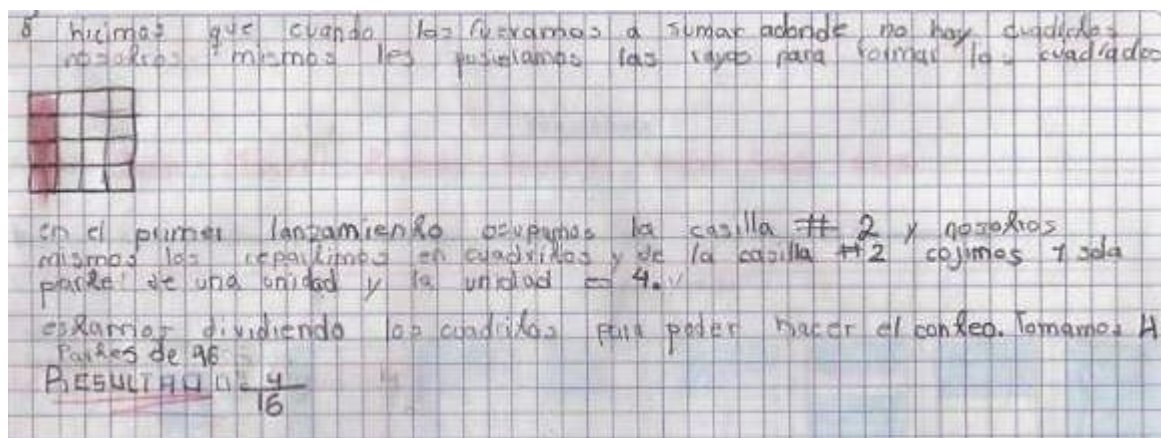 8 hicimos que cuando los fueramos a sumar adonde no hay cuadritos
nosotros mismos les pusieramos las rayas para formar los cuadrados
en el primer lanzamiento ocupamos la casilla # 2 y nosotros
mismos los repartimos en cuadritos y de la casilla #2 cojimos 1 sola
parte de una unidad y la unidad = 4.
estamos dividiendo los cuadritos para poder hacer el conteo. Tomamos 4
Partes de 16
RESULTADO 4
16